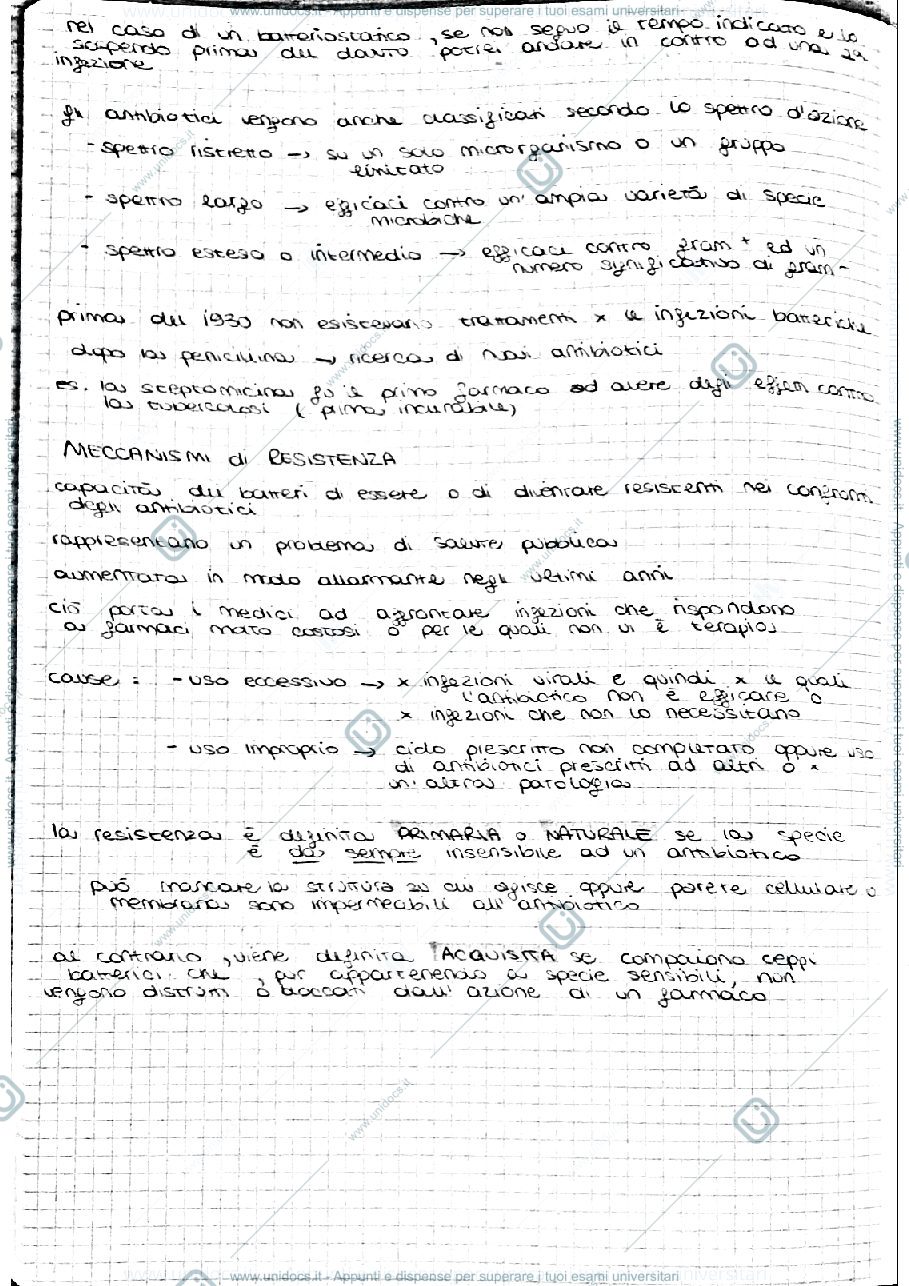 www.unidocs.it - Appunti e dispense per superare i tuoi esami universitari
nel caso di un batteriostatico, se non seguo il tempo indicato e lo
sospendo prima del dovuto potrei andare in contro ad una 2a
infezione
gli antibiotici vengono anche classificati secondo lo spettro d'azione
- spettro ristretto → su un solo microrganismo o un gruppo
limitato
- spettro largo → efficaci contro un'ampia varietà di specie
microbiche
- spettro esteso o intermedio → efficaci contro gram + ed un
numero significativo di gram -
prima del 1930 non esistevano trattamenti x le infezioni batteriche
dopo la penicillina → ricerca di nuovi antibiotici
es. la streptomicina fu il primo farmaco ad avere degli effetti contro
la tubercolosi (prima incurabile)
MECCANISMI di RESISTENZA
capacità dei batteri di essere o di diventare resistenti nei confronti
degli antibiotici
rappresentano un problema di salute pubblica
aumentata in modo allarmante negli ultimi anni
ciò porta i medici ad affrontare infezioni che rispondono
a farmaci molto costosi o per le quali non vi è terapia
cause : - uso eccessivo → x infezioni virali e quindi x le quali
l'antibiotico non è efficace o
x infezioni che non lo necessitano
- uso improprio → ciclo prescritto non completato oppure uso
di antibiotici prescritti ad altri o x
un'altra patologia
la resistenza è definita PRIMARIA o NATURALE se la specie
è da sempre insensibile ad un antibiotico
può mancare la struttura su cui agisce oppure parete cellulare o
membrana sono impermeabili all'antibiotico
al contrario, viene definita ACQUISITA se compaiono ceppi
batterici che, pur appartenendo a specie sensibili, non
vengono distrutti o bloccati dall'azione di un farmaco
www.unidocs.it - Appunti e dispense per superare i tuoi esami universitari